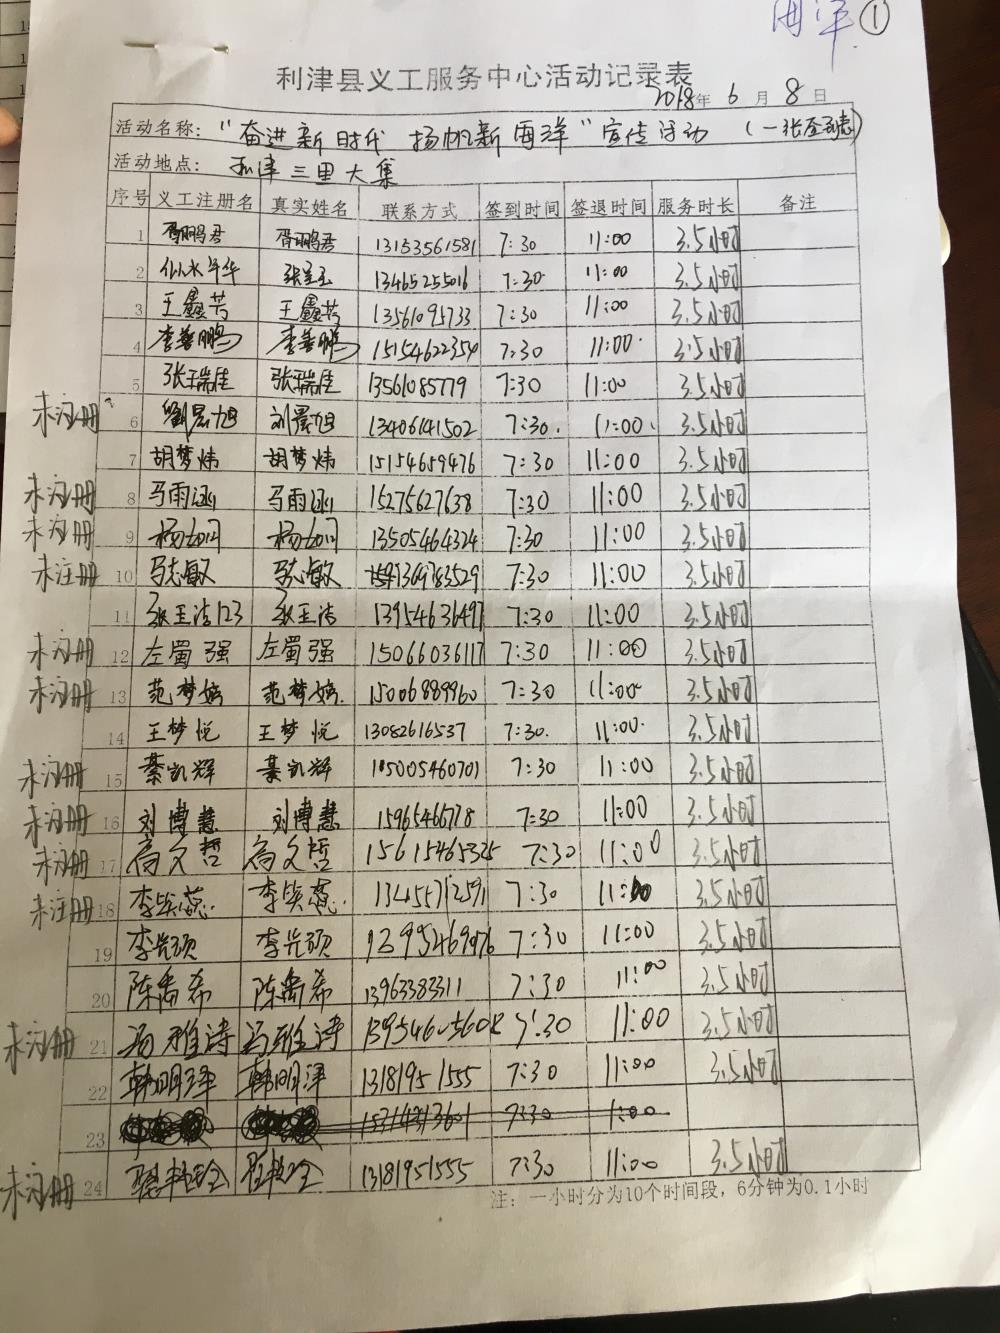 海洋 ①
利津县义工服务中心活动记录表
2018年 6 月 8 日
活动名称： "奋进新时代 扬帆新海洋"宣传活动
活动地点： 利津三里大集
序号 义工注册名 真实姓名 联系方式 签到时间 签退时间 服务时长 备注
1 胥鹏君 胥鹏君 13153561581 7:30 11:00 3.5小时
2 13465255016 7:30 11:00 3.5小时
3 王鑫芳 王鑫芳 13561095733 7:30 11:00 3.5小时
4 李善鹏 李善鹏 15154622354 7:30 11:00 3.5小时
5 张瑞佳 张瑞佳 13561085779 7:30 11:00 3.5小时
未注册 6 劉景旭 刘景旭 13406141502 7:30. 11:00. 3.5小时
7 胡梦炜 胡梦炜 15154659476 7:30 11:00 3.5小时
未注册 8 马雨涵 马雨涵 15275627638 7:30 11:00 3.5小时
未注册 9 杨如闪 杨如闪 13505464324 7:30 11:00 3.5小时
未注册 10 马志敏 马志敏 1369783529 7:30 11:00 3.5小时
11 张玉洁123 张玉洁 13954636497 7:30 11:00 3.5小时
未注册 12 左蜀强 左蜀强 15066036117 7:30 11:00 3.5小时
未注册 13 范梦婷 范梦婷. 15006889960 7:30 11:00 3.5小时
14 王梦悦 王梦悦 13082616537 7:30. 11:00 3.5小时
未注册 15 綦凯辉 綦凯辉 15005460701 7:30 11:00 3.5小时
未注册 16 刘博慧 刘博慧 15965466778 7:30 11:00 3.5小时
未注册 17 高文哲 高文哲 15615465325 7:30 11:00 3.5小时
未注册 18 李奕蕊. 李奕蕊. 13455712591 7:30 11:00 3.5小时
19 李光硕 李光硕 12995469976 7:30 11:00 3.5小时
20 陈禹希 陈禹希 13963383311 7:30 11:00 3.5小时
未注册 21 冯雅诗 冯雅诗 7:30 11:00 3.5小时
22 韩明泽 韩明泽 13181951555 7:30 11:00 3.5小时
23 15314213601 7:30 1:00
未注册 24 13181951555 7:30 11:00 3.5小时
注: 一小时分为10个时间段，6分钟为0.1小时